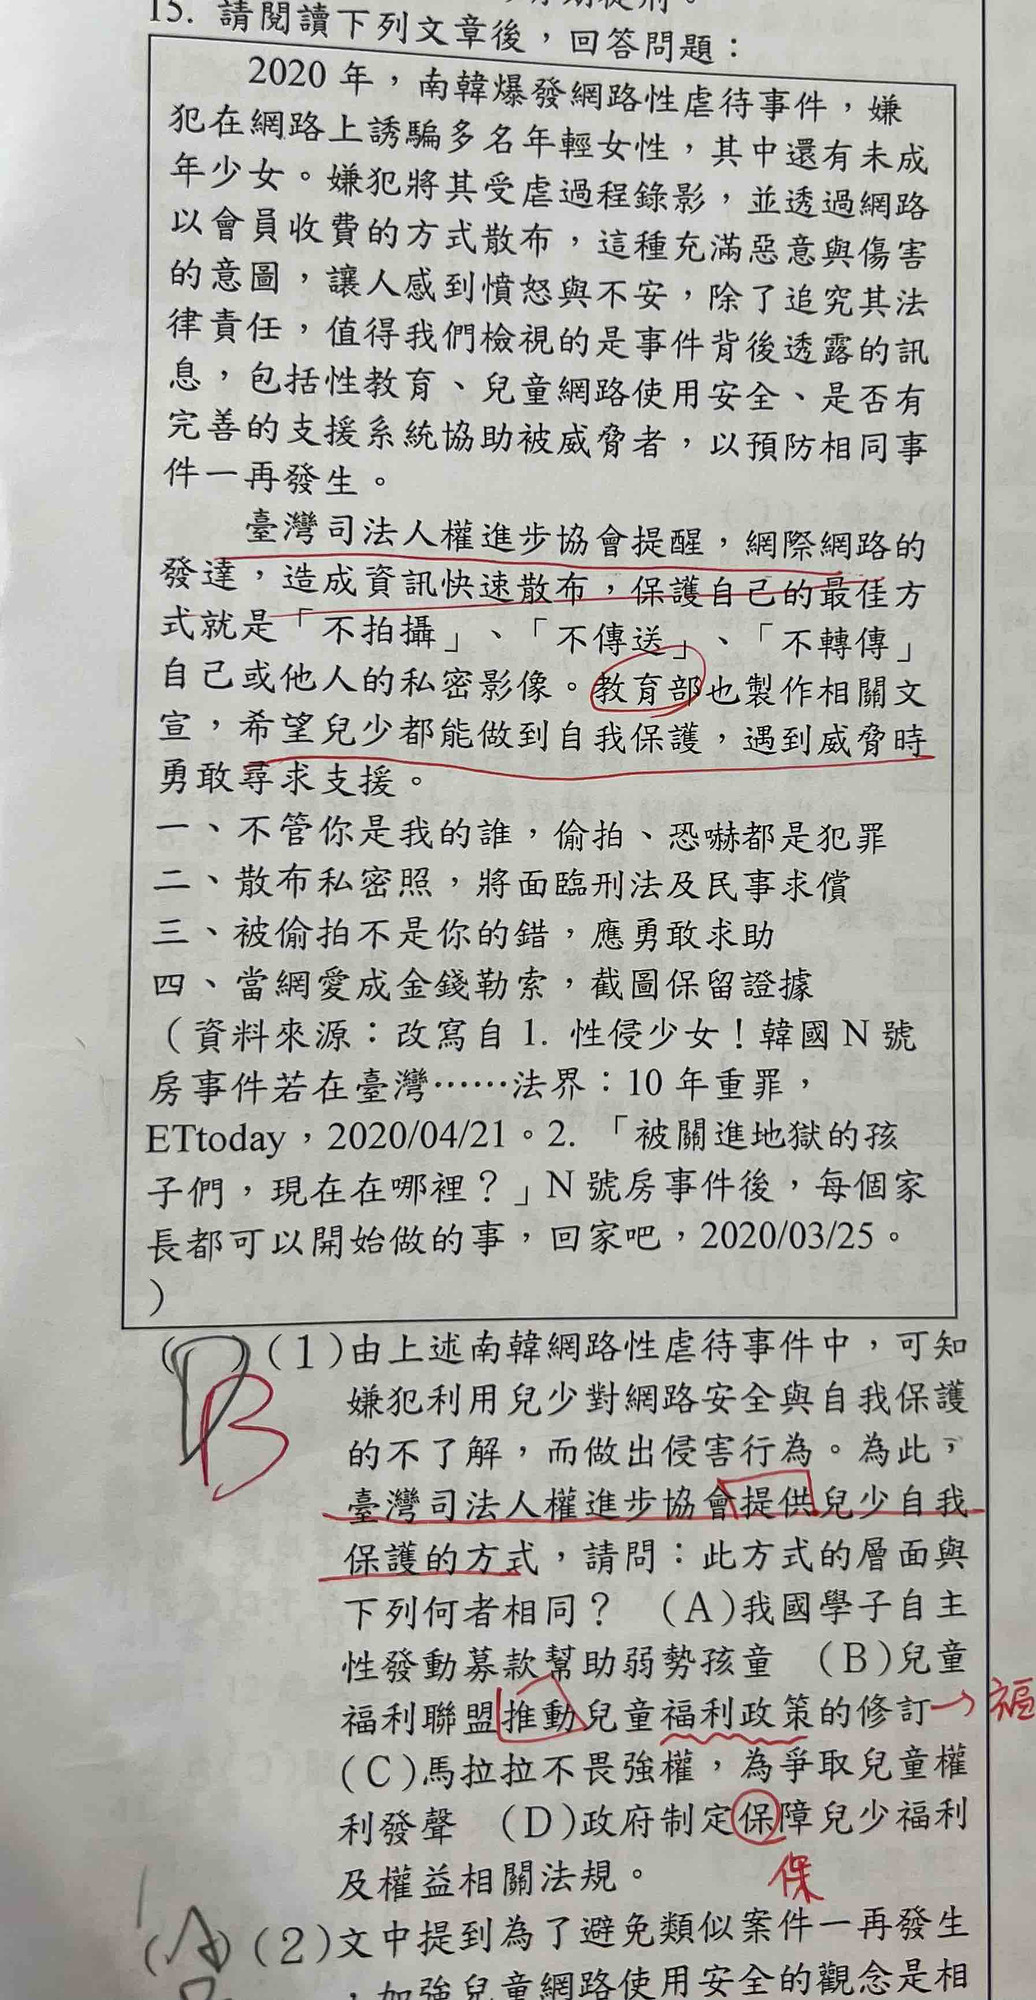 15. 請閱讀下列文章後，回答問題：
2020 年，南韓爆發網路性虐待事件，嫌
犯在網路上誘騙多名年輕女性，其中還有未成
年少女。嫌犯將其受虐過程錄影，並透過網路
以會員收費的方式散布，這種充滿惡意與傷害
的意圖，讓人感到憤怒與不安，除了追究其法
律責任，值得我們檢視的是事件背後透露的訊
息，包括性教育、兒童網路使用安全、是否有
完善的支援系統協助被威脅者，以預防相同事
件一再發生。
臺灣司法人權進步協會提醒，網際網路的
發達，造成資訊快速散布，保護自己的最佳方
式就是「不拍攝」、「不傳送」、「不轉傳」
自己或他人的私密影像。教育部也製作相關文
宣，希望兒少都能做到自我保護，遇到威脅時
勇敢尋求支援。
一、不管你是我的誰，偷拍、恐嚇都是犯罪
二、散布私密照，將面臨刑法及民事求償
三、被偷拍不是你的錯，應勇敢求助
四、當網愛成金錢勒索，截圖保留證據
（資料來源：改寫自 1. 性侵少女！韓國 N 號
房事件若在臺灣……法界：10 年重罪，
ETtoday，2020/04/21。2. 「被關進地獄的孩
子們，現在在哪裡？」N 號房事件後，每個家
長都可以開始做的事，回家吧，2020/03/25。
）
( D ) B (1)由上述南韓網路性虐待事件中，可知
嫌犯利用兒少對網路安全與自我保護
的不了解，而做出侵害行為。為此，
臺灣司法人權進步協會提供兒少自我
保護的方式，請問：此方式的層面與
下列何者相同？ (A)我國學子自主
性發動募款幫助弱勢孩童 (B)兒童
福利聯盟推動兒童福利政策的修訂→福
(C)馬拉拉不畏強權，為爭取兒童權
利發聲 (D)政府制定保障兒少福利
保
及權益相關法規。
( A ) (2)文中提到為了避免類似案件一再發生
，加強兒童網路使用安全的觀念是相